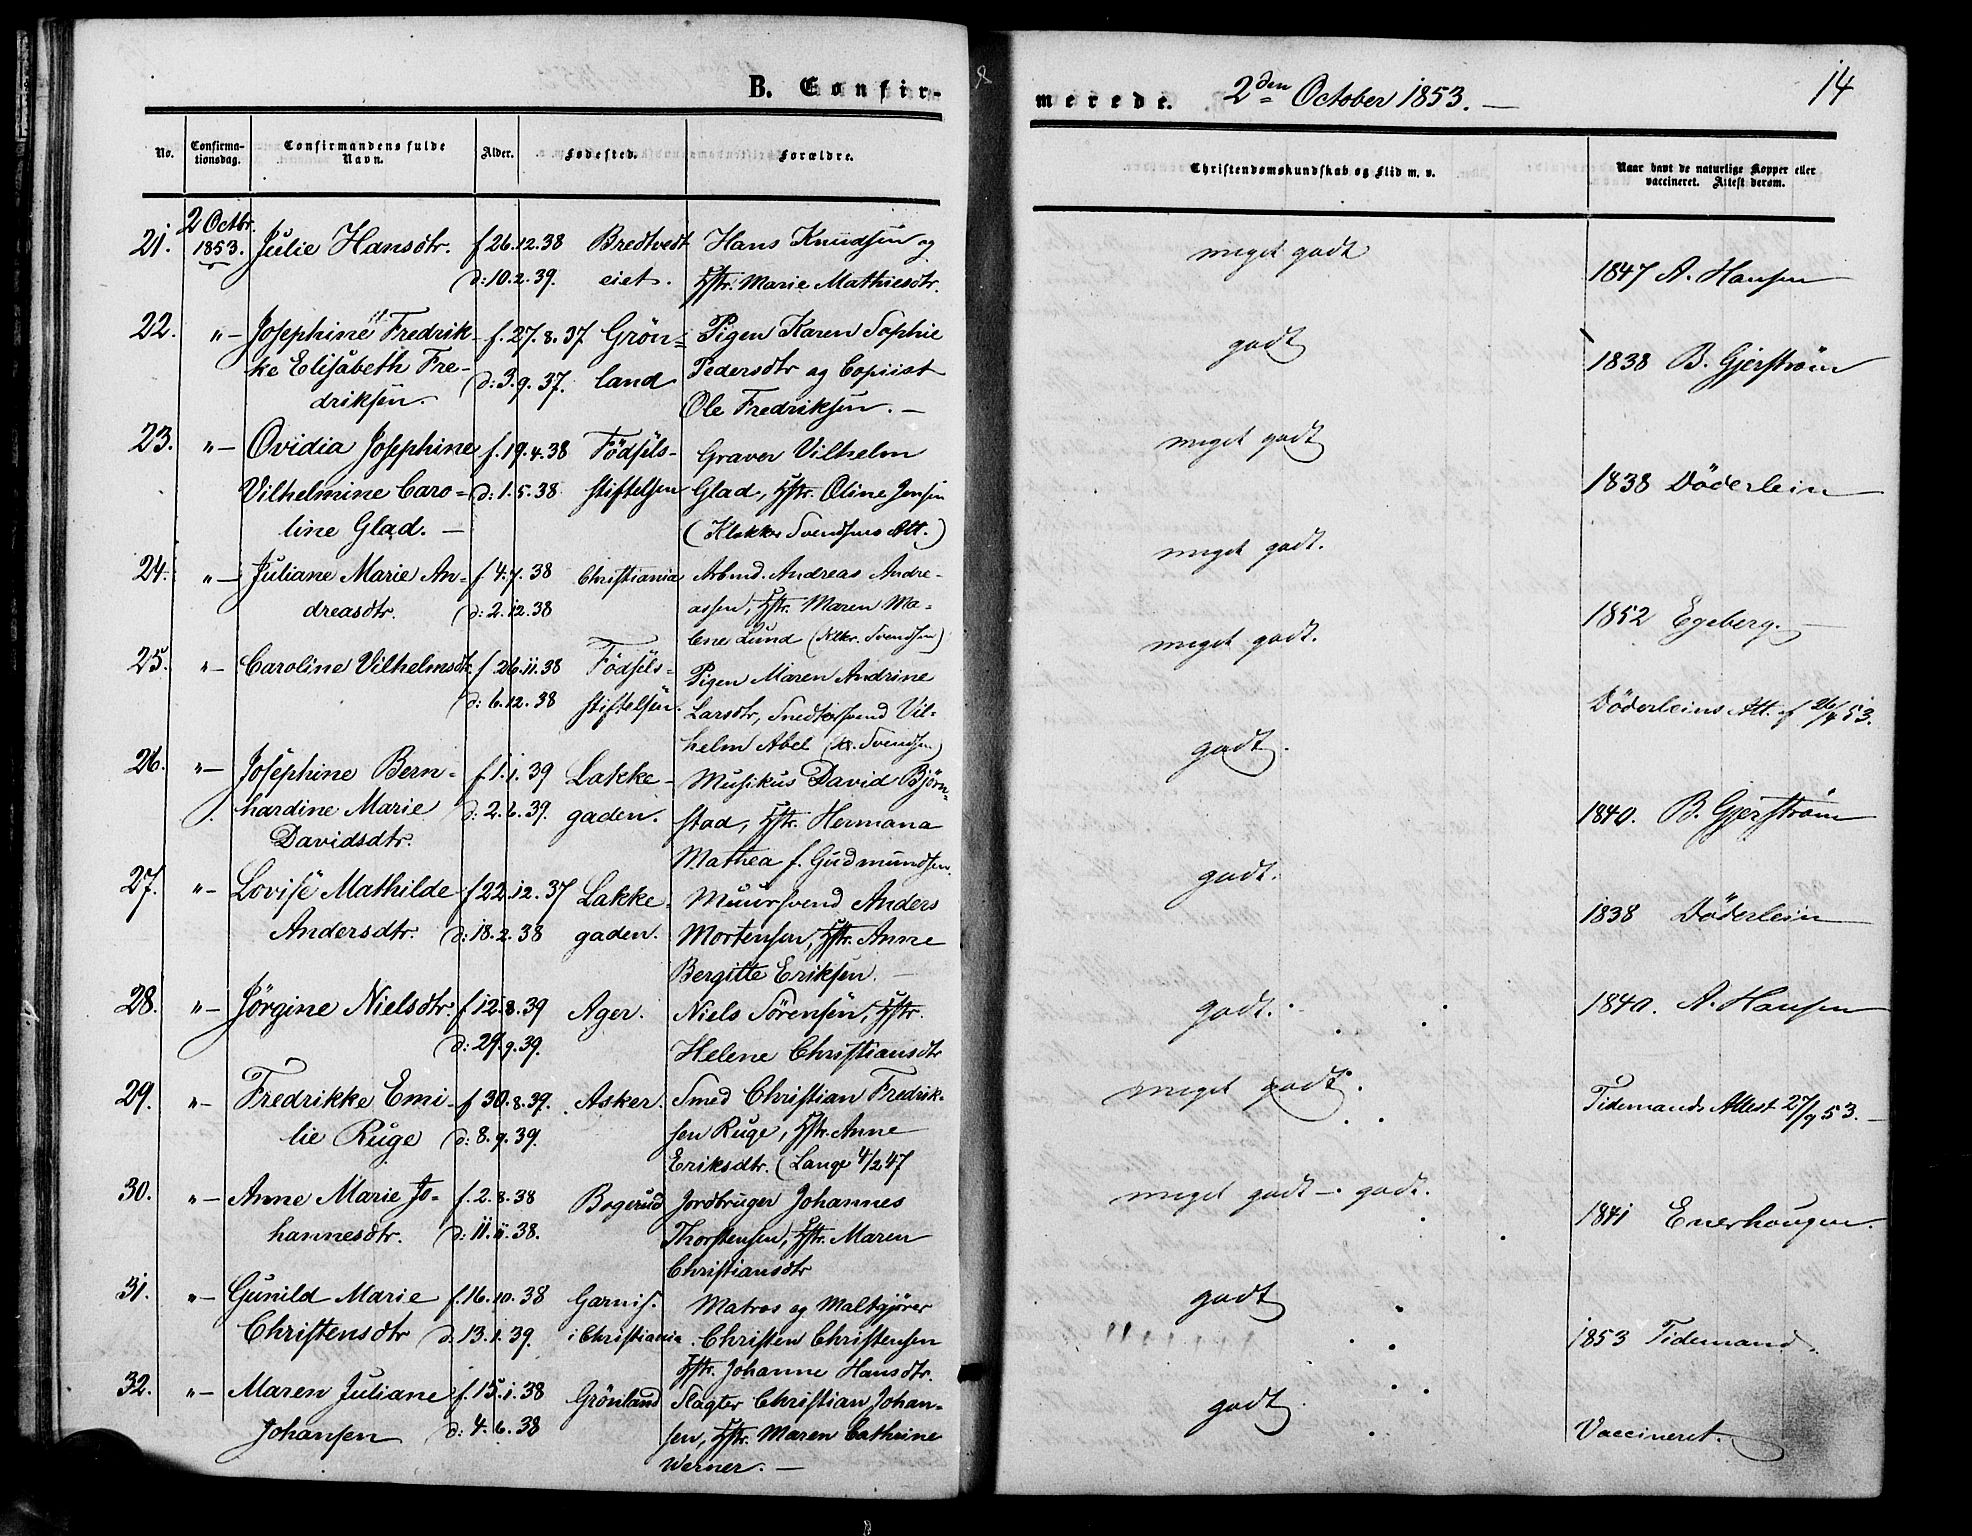 B. Confir-
merede. 2den October 1853. —
14
No. Confirma-tionsdag. Confirmandens fulde Navn. Alder. Fødested. Forældre. Christendomskundskab og Flid m. v. Naar havt de naturlige Kopper eller vaccineret. Attest derom.
21. 2 Octbr. 1853. Julie Hansdtr. f. 26.12.38 Bredtvedt Hans Knudsen og meget godt
d: 10.2.39. eiet. Hstr. Marie Mathiesdtr. 1847 A. Hansen
22. "— Josephine Fredrik- f. 27.8.37 Grön- Pigen Karen Sophie godt
ke Elisabeth Fre- d: 3.9.37. land Pedersdtr og Copiist 1838 B. Gjerström
driksen. Ole Fredriksen. —
23. "— Ovidia Josephine f. 19.4.38 Födsels- Graver Vilhelm meget godt
Vilhelmine Caro- d: 1.5.38. stiftelsen Glad, Hstr. Oline Jensen 1838 Döderlein
line Glad. — (Klokker Svendsens Att.)
24. "— Juliane Marie An- f. 4.7.38 Christiania Arbmd. Andreas Andre- meget godt.
dreasdtr. d: 2.12.38 assen, Hstr. Maren Ma- 1852 Egeberg.
lene Lund (Klkr. Svendsen)
25. "— Caroline Vilhelmsdtr. f. 26.11.38 Födsels- Pigen Maren Andrine meget godt.
d: 6.12.38 stiftelsen. Larsdtr, Snedkersvend Vil- Döderleins Att. af 26/4 53.
helm Abel (Kl. Svendsen)
26. "— Josephine Bern- f. 1.1.39 Lakke- Musikus David Björn- godt.
hardine Marie d: 2.6.39. gaden. stad, Hstr. Hermana 1840. B. Gjerström
Davidsdtr. Mathea f. Gudmundsen.
27. "— Lovise Mathilde f. 22.12.37 Lakke- Muursvend Anders godt.
Andersdtr. d: 18.2.38 gaden. Mortensen, Hstr. Anne 1838 Döderlein
Bergitte Eriksen. —
28. "— Jörgine Nielsdtr. f. 12.8.39 Ager. Niels Sörensen, Hstr. godt. 1840. A. Hansen
d: 29.9.39. Helene Christiansdtr
29. "— Fredrikke Emi- f. 30.8.39. Asker. Smed Christian Fredrik- meget godt. Tidemands Attest 27/9 53. —
lie Ruge d: 8.9.39. sen Ruge, Hstr. Anne
Eriksdtr. (Lange 4/2 47
30. "— Anne Marie Jo- f. 2.8.38 Bogerud Jordbruger Johannes meget godt — godt.
hannesdtr. d: 11.11.38. Thorstensen, Hstr. Maren 1841 Enerhougen.
Christiansdtr
31. "— Gunild Marie f. 16.10.38 Garnis. Matros og Maltgjører godt
Christensdtr d: 13.1.39. i Christiania Christen Christensen 1853 Tidemand.
Hstr. Johanne Hansdtr.
32. "— Maren Juliane f. 15.1.38 Grönland Slagter Christian Johan- godt
Johansen d: 4.6.38 sen, Hstr. Maren Cathrine Vaccineret.
Werner. —